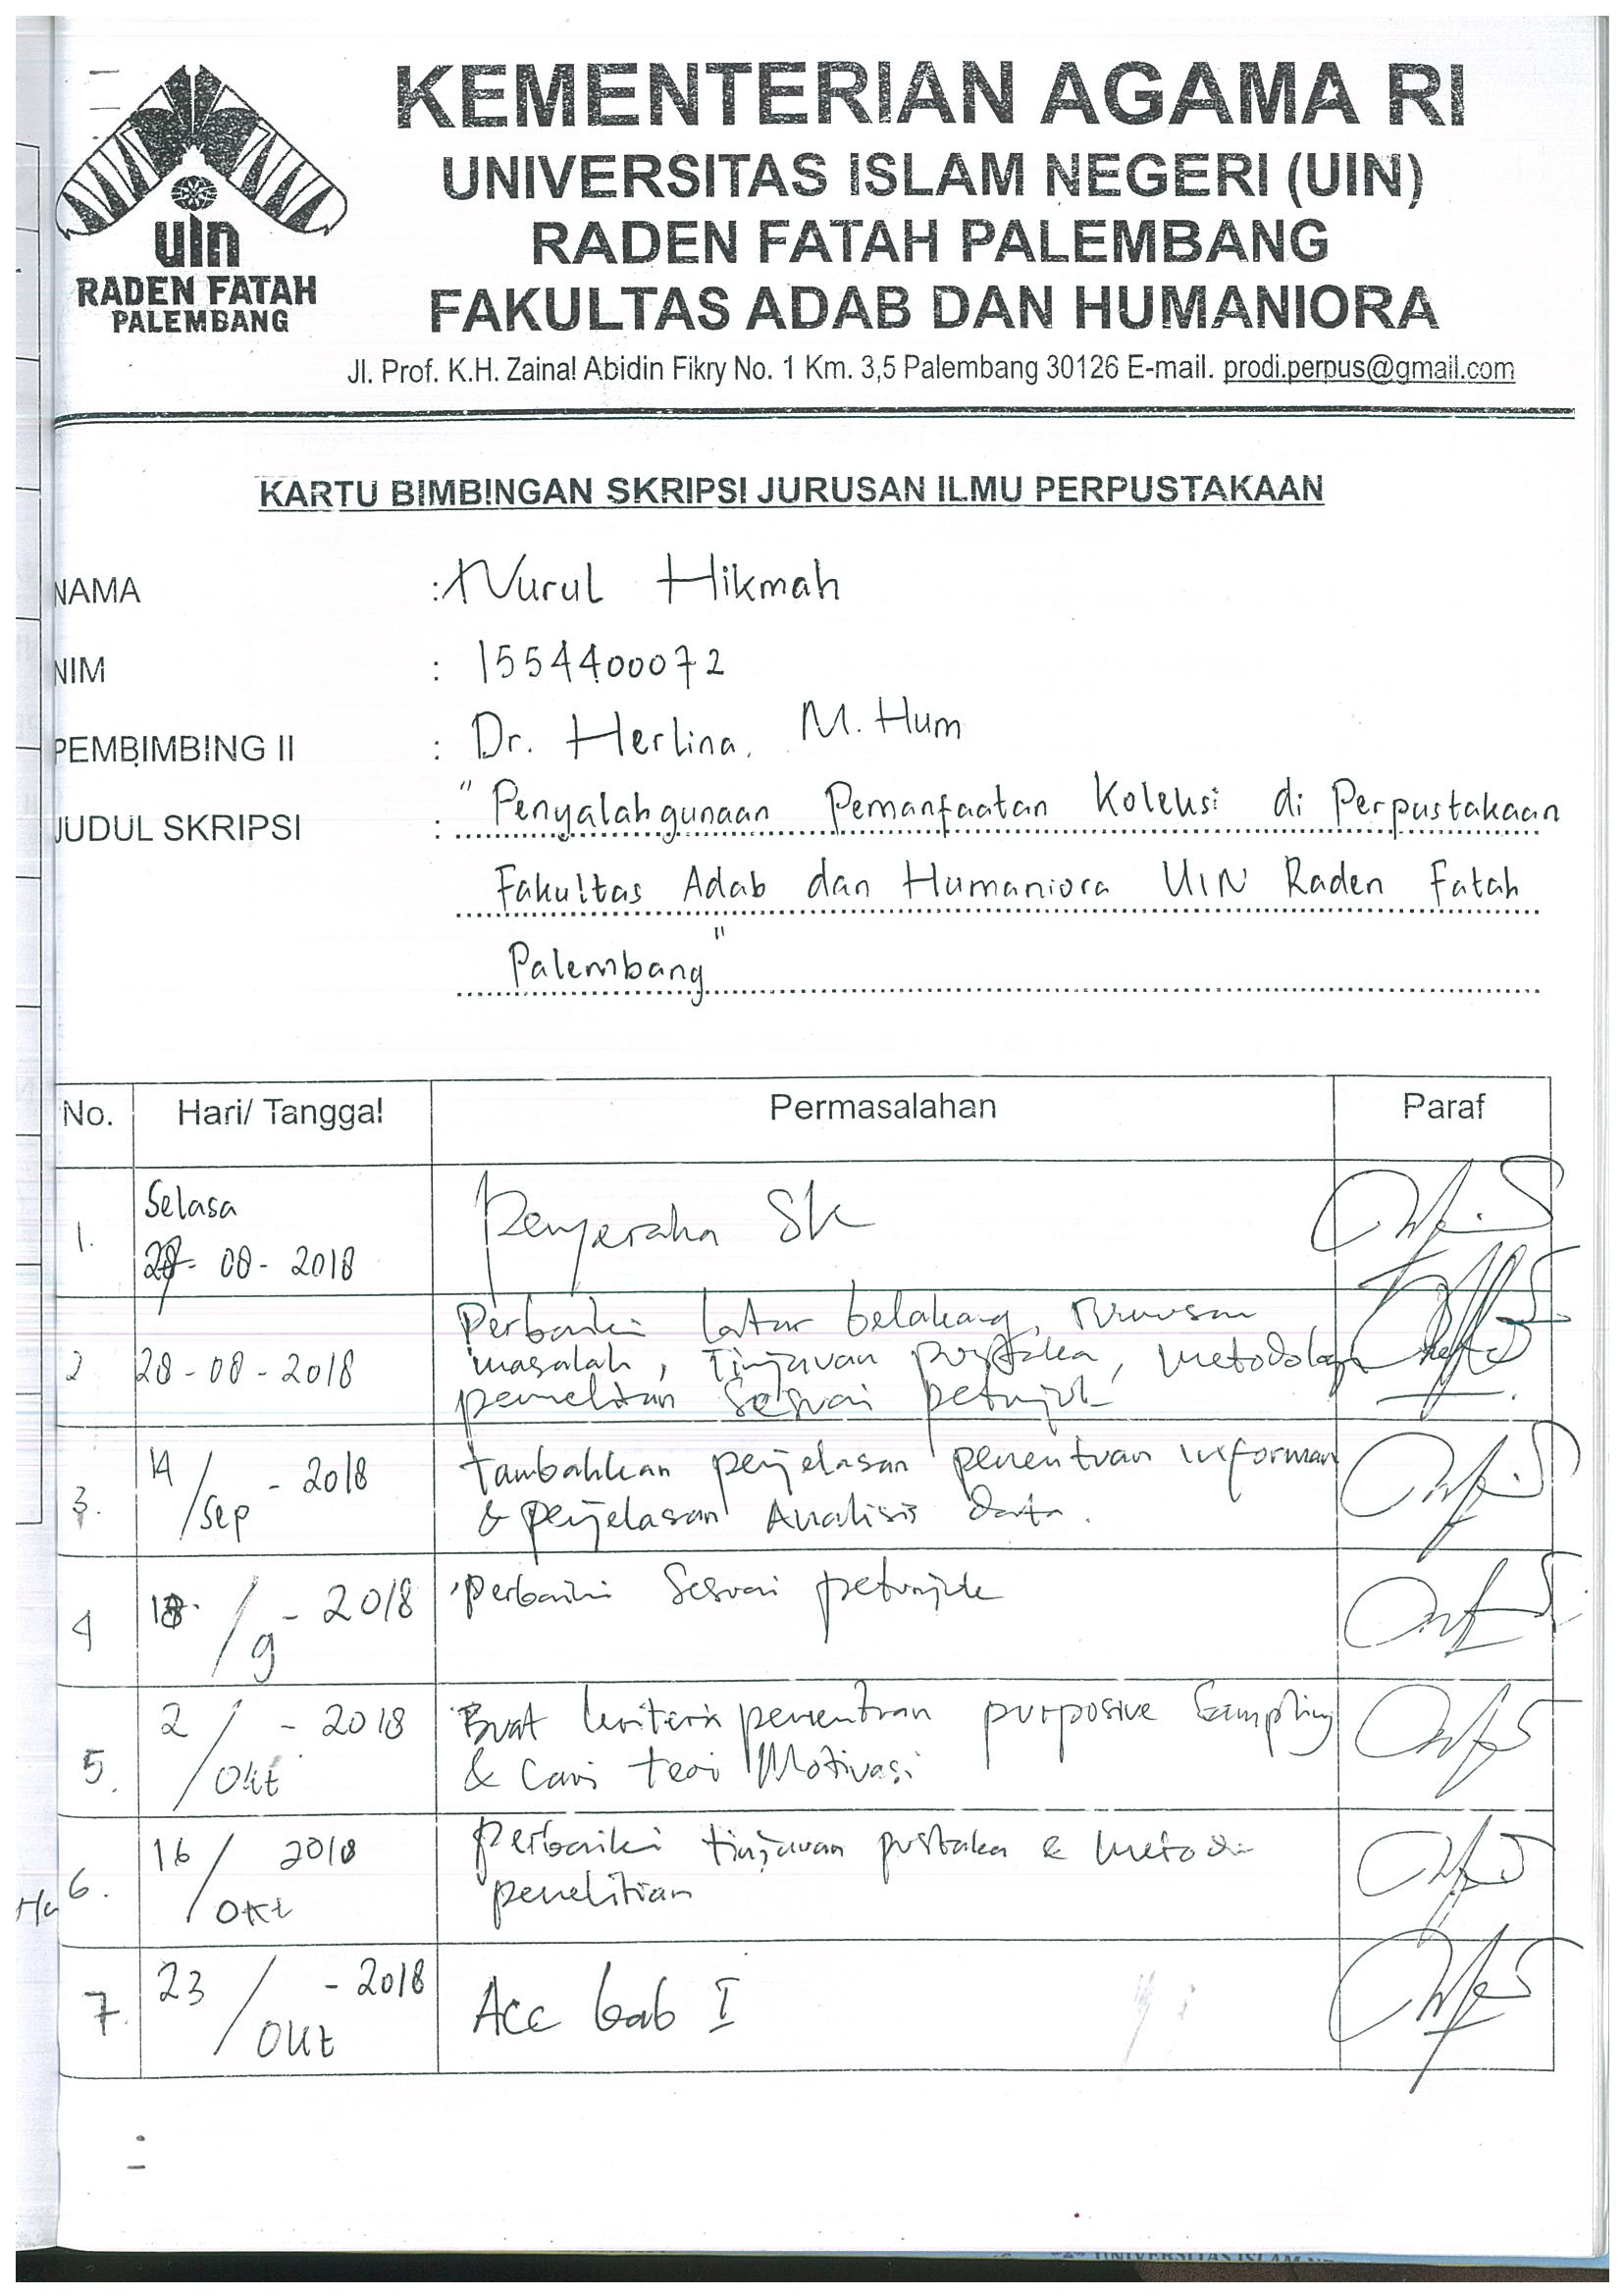 KEMENTERIAN AGAMA RI
UNIVERSITAS ISLAM NEGERI (UIN)
RADEN FATAH PALEMBANG
FAKULTAS ADAB DAN HUMANIORA
Jl. Prof. K.H. Zainal Abidin Fikry No. 1 Km. 3,5 Palembang 30126 E-mail. prodi.perpus@gmail.com
uin
RADEN FATAH
PALEMBANG
KARTU BIMBINGAN SKRIPSI JURUSAN ILMU PERPUSTAKAAN
NAMA : Nurul Hikmah
NIM : 1554400072
PEMBIMBING II : Dr. Herlina, M.Hum
JUDUL SKRIPSI : "Penyalahgunaan Pemanfaatan Koleksi di Perpustakaan
Fakultas Adab dan Humaniora UIN Raden Fatah
Palembang"
No. Hari/ Tanggal Permasalahan Paraf
1. Selasa
28-08-2018 Penyeraha SK
2 28-08-2018 Perbaiki latar belakang, Rumusan
masalah, Tinjauan pustaka, metodologi
penelitian Sesuai petunjuk
3. 14/Sep - 2018 tambahkan penjelasan penentuan informan
& penjelasan Analisis data.
4 18/9 - 2018 Perbaiki Sesuai petunjuk
5. 2/Okt - 2018 Buat kriteria penentuan purposive Sampling
& Cari teori Motivasi
6. 16/Okt 2018 perbaiki tinjauan pustaka & metode
penelitian
7. 23/Okt - 2018 Acc bab I